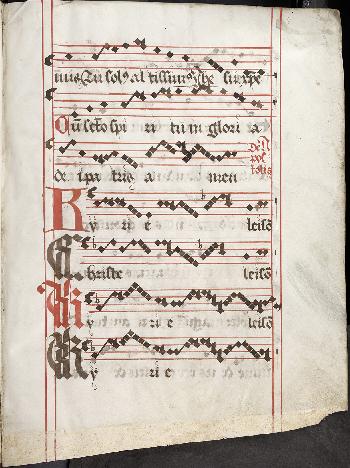 nus Tu sol9 al tissim9 Ihe xpe
Cu scto spi ri tu in glori a
de i pa tris a men
Ky ri e leiso
Christe leiso
Ky ri e leiso
Ky ri e